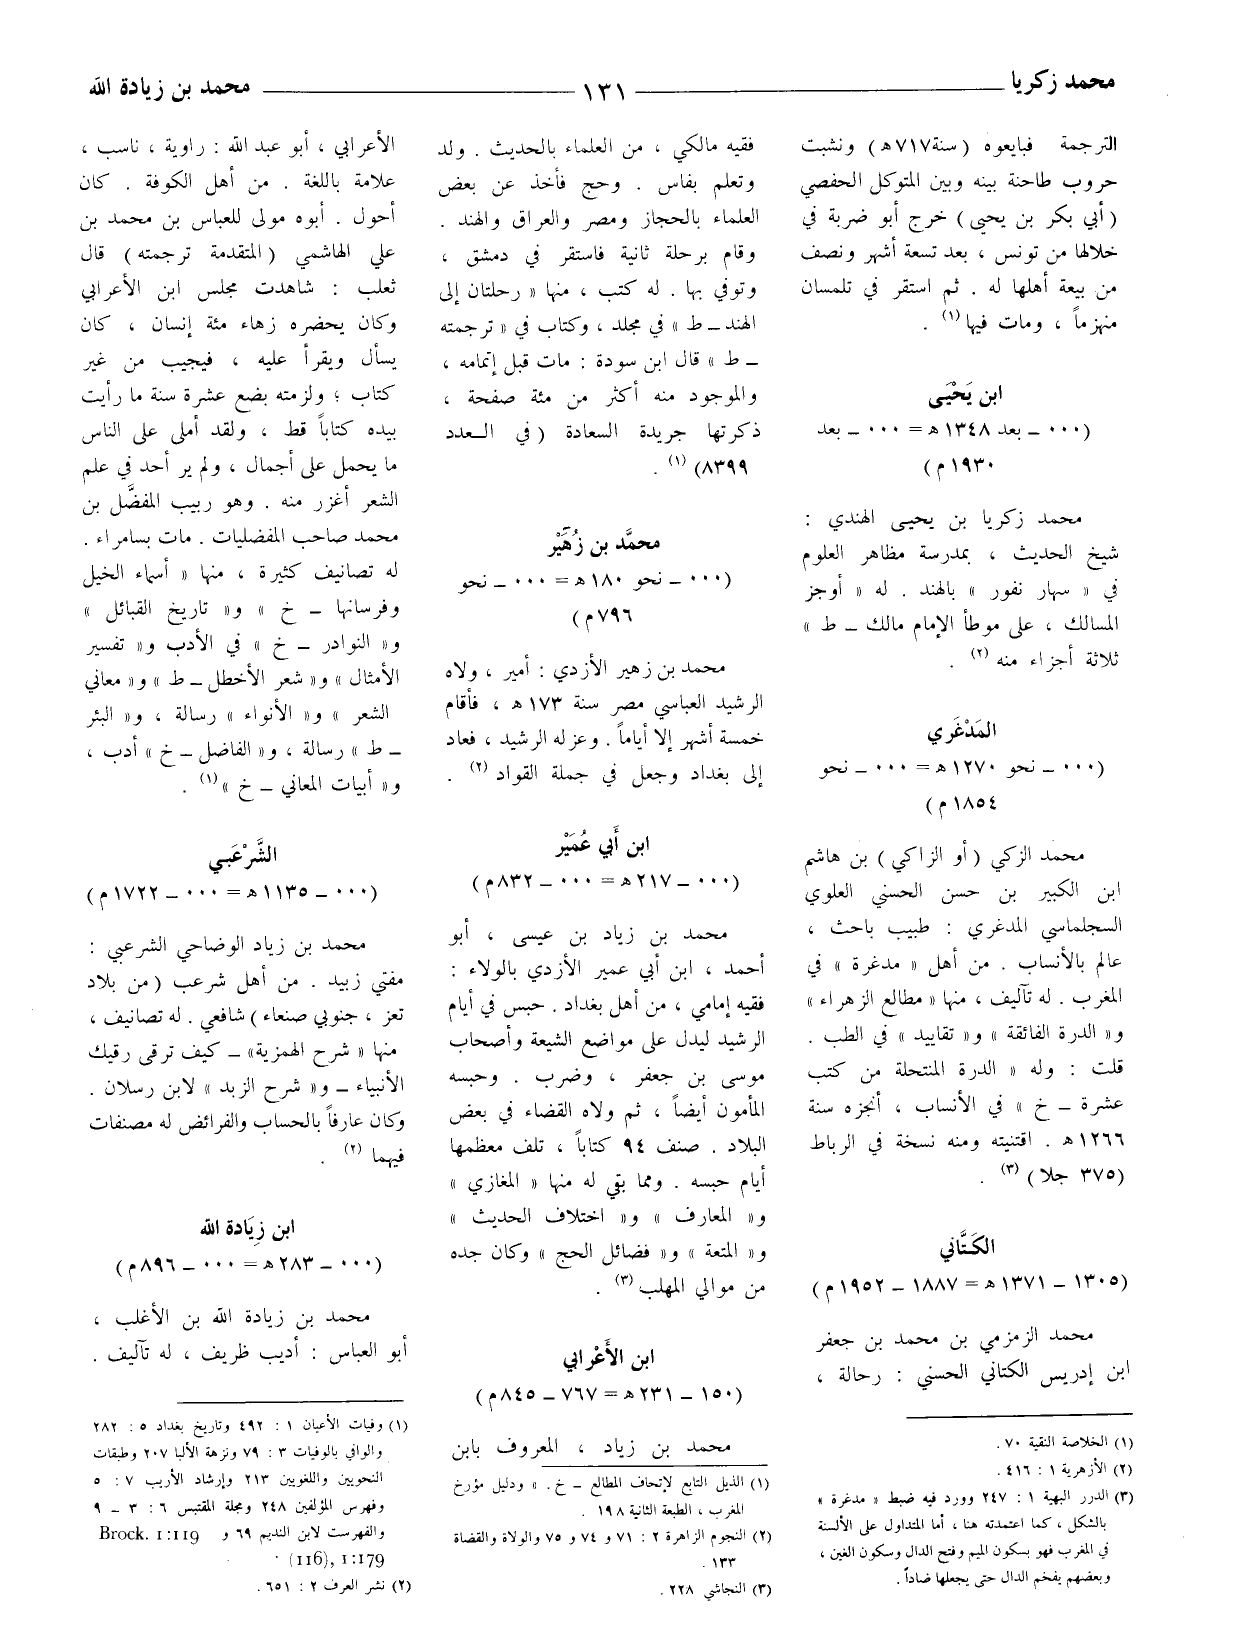 محمد زكريا ١٣١ محمد بن زيادة الله
الترجمة فبايعوه (سنة٧١٧ه‍) ونشبت
حروب طاحنة بينه وبين المتوكل الحفصي
(أبي بكر بن يحيى) خرج أبو ضربة في
خلالها من تونس ، بعد تسعة أشهر ونصف
من بيعة أهلها له . ثم استقر في تلمسان
منهزماً ، ومات فيها (١) .
ابن يَحْيَى
(٠٠٠ ـ بعد ١٣٤٨ ه‍ = ٠٠٠ ـ بعد
١٩٣٠ م)
محمد زكريا بن يحيى الهندي :
شيخ الحديث ، بمدرسة مظاهر العلوم
في « سهار نفور » بالهند . له « أوجز
المسالك ، على موطأ الإمام مالك ـ ط »
ثلاثة أجزاء منه (٢) .
المَدْغَري
(٠٠٠ ـ نحو ١٢٧٠ ه‍ = ٠٠٠ ـ نحو
١٨٥٤ م)
محمد الزكي (أو الزاكي) بن هاشم
ابن الكبير بن حسن الحسني العلوي
السجلماسي المدغري : طبيب باحث ،
عالم بالأنساب . من أهل « مدغرة » في
المغرب . له تآليف ، منها « مطالع الزهراء »
و« الدرة الفائقة » و« تقاييد » في الطب .
قلت : وله « الدرة المنتحلة من كتب
عشرة ـ خ » في الأنساب ، أنجزه سنة
١٢٦٦ ه‍ . اقتنيته ومنه نسخة في الرباط
(٣٧٥ جلا) (٣) .
الكَتَّاني
(١٣٠٥ ـ ١٣٧١ ه‍ = ١٨٨٧ ـ ١٩٥٢ م)
محمد الزمزمي بن محمد بن جعفر
ابن إدريس الكتاني الحسني : رحالة ،
(١) الخلاصة النقية ٧٠ .
(٢) الأزهرية ١ : ٤١٦ .
(٣) الدرر البهية ١ : ٢٤٧ وورد فيه ضبط « مدغرة »
بالشكل ، كما اعتمدته هنا ، أما المتداول على الألسنة
في المغرب فهو بسكون الميم وفتح الدال وسكون الغين ،
وبعضهم يفخم الدال حتى يجعلها ضاداً .
فقيه مالكي ، من العلماء بالحديث . ولد
وتعلم بفاس . وحج فأخذ عن بعض
العلماء بالحجاز ومصر والعراق والهند .
وقام برحلة ثانية فاستقر في دمشق ،
وتوفي بها . له كتب ، منها « رحلتان إلى
الهند ـ ط » في مجلد ، وكتاب في « ترجمته
ـ ط » قال ابن سودة : مات قبل إتمامه ،
والموجود منه أكثر من مئة صفحة ،
ذكرتها جريدة السعادة (في العدد
٨٣٩٩) (١) .
محمَّد بن زُهَيْر
(٠٠٠ ـ نحو ١٨٠ ه‍ = ٠٠٠ ـ نحو
٧٩٦ م)
محمد بن زهير الأزدي : أمير ، ولاه
الرشيد العباسي مصر سنة ١٧٣ ه‍ ، فأقام
خمسة أشهر إلا أياماً . وعزله الرشيد ، فعاد
إلى بغداد وجعل في جملة القواد (٢) .
ابن أَبي عُمَيْر
(٠٠٠ ـ ٢١٧ ه‍ = ٠٠٠ ـ ٨٣٢م)
محمد بن زياد بن عيسى ، أبو
أحمد ، ابن أبي عمير الأزدي بالولاء :
فقيه إمامي ، من أهل بغداد . حبس في أيام
الرشيد ليدل على مواضع الشيعة وأصحاب
موسى بن جعفر ، وضرب . وحبسه
المأمون أيضاً ، ثم ولاه القضاء في بعض
البلاد . صنف ٩٤ كتاباً ، تلف معظمها
أيام حبسه . ومما بقي له منها « المغازي »
و« المعارف » و« اختلاف الحديث »
و« المتعة » و« فضائل الحج » وكان جده
من موالي المهلب (٣) .
ابن الأَعْرابي
(١٥٠ ـ ٢٣١ ه‍ = ٧٦٧ ـ ٨٤٥ م)
محمد بن زياد ، المعروف بابن
(١) الذيل التابع لإتحاف المطالع ـ خ . » ودليل مؤرخ
المغرب ، الطبعة الثانية ١٩٨ .
(٢) النجوم الزاهرة ٢ : ٧١ و ٧٤ و ٧٥ والولاة والقضاة
١٣٣ .
(٣) النجاشي ٢٢٨ .
الأعرابي ، أبو عبد الله : راوية ، ناسب ،
علامة باللغة . من أهل الكوفة . كان
أحول . أبوه مولى للعباس بن محمد بن
علي الهاشمي (المتقدمة ترجمته) قال
ثعلب : شاهدت مجلس ابن الأعرابي
وكان يحضره زهاء مئة إنسان ، كان
يسأل ويقرأ عليه ، فيجيب من غير
كتاب ؛ ولزمته بضع عشرة سنة ما رأيت
بيده كتاباً قط ، ولقد أملى على الناس
ما يحمل على أجمال ، ولم ير أحد في علم
الشعر أغزر منه . وهو ربيب المفضَّل بن
محمد صاحب المفضليات . مات بسامراء .
له تصانيف كثيرة ، منها « أسماء الخيل
وفرسانها ـ خ » و« تاريخ القبائل »
و« النوادر ـ خ » في الأدب و« تفسير
الأمثال » و« شعر الأخطل ـ ط » و« معاني
الشعر » و« الأنواء » رسالة ، و« البئر
ـ ط » رسالة ، و« الفاضل ـ خ » أدب ،
و« أبيات المعاني ـ خ » (١) .
الشَّرْعَبي
(٠٠٠ ـ ١١٣٥ ه‍ = ٠٠٠ ـ ١٧٢٢ م)
محمد بن زياد الوضاحي الشرعبي :
مفتي زبيد . من أهل شرعب (من بلاد
تعز ، جنوبي صنعاء) شافعي . له تصانيف ،
منها « شرح الهمزية» ـ كيف ترقى رقيك
الأنبياء ـ و« شرح الزبد » لابن رسلان .
وكان عارفاً بالحساب والفرائض له مصنفات
فيهما (٢) .
ابن زيَادة الله
(٠٠٠ ـ ٢٨٣ ه‍ = ٠٠٠ ـ ٨٩٦ م)
محمد بن زيادة الله بن الأغلب ،
أبو العباس : أديب ظريف ، له تآليف .
(١) وفيات الأعيان ١ : ٤٩٢ وتاريخ بغداد ٥ : ٢٨٢
والوافي بالوفيات ٣ : ٧٩ ونزهة الألبا ٢٠٧ وطبقات
النحويين واللغويين ٢١٣ وإرشاد الأريب ٧ : ٥
وفهرس المؤلفين ٢٤٨ ومجلة المقتبس ٦ : ٣ ـ ٩
والفهرست لابن النديم ٦٩ و Brock. 1:119
(116), 1:179 .
(٢) نشر العرف ٢ : ٦٥١ .